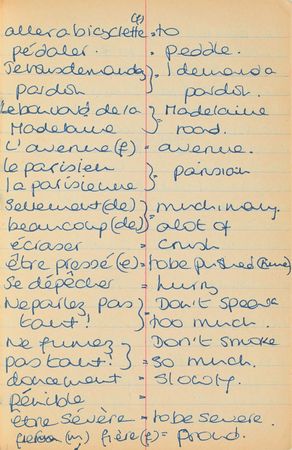 (f)
aller a bicyclette = to
pédaler. = peddle.
Je vous demande } = I demand a
pardon } pardon.
Le boulevard de la } = Madelaine
Madelaine } road.
L'avenue (f) = avenue.
le parisien } = parisian
la parisienne }
Tellement (de) } = much/many.
beaucoup (de) } a lot of
écraser = crush
être pressé (e) = to be pushed (time)
se dépêcher = hurry
Ne parlez pas } = Don't speak
tant! } too much.
Ne fumez } = Don't smoke
pas tant! } so much.
doucement = slowly.
pénible =
être sévère = to be severe.
(m) fière (f) = proud.